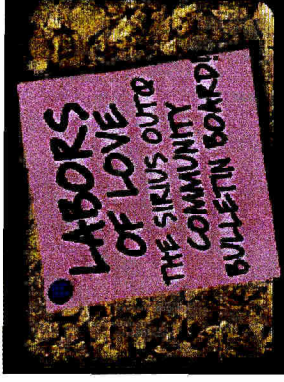 LABORS
OF LOVE
THE SIRIUS OUTQ
COMMUNITY
BULLETIN BOARD!